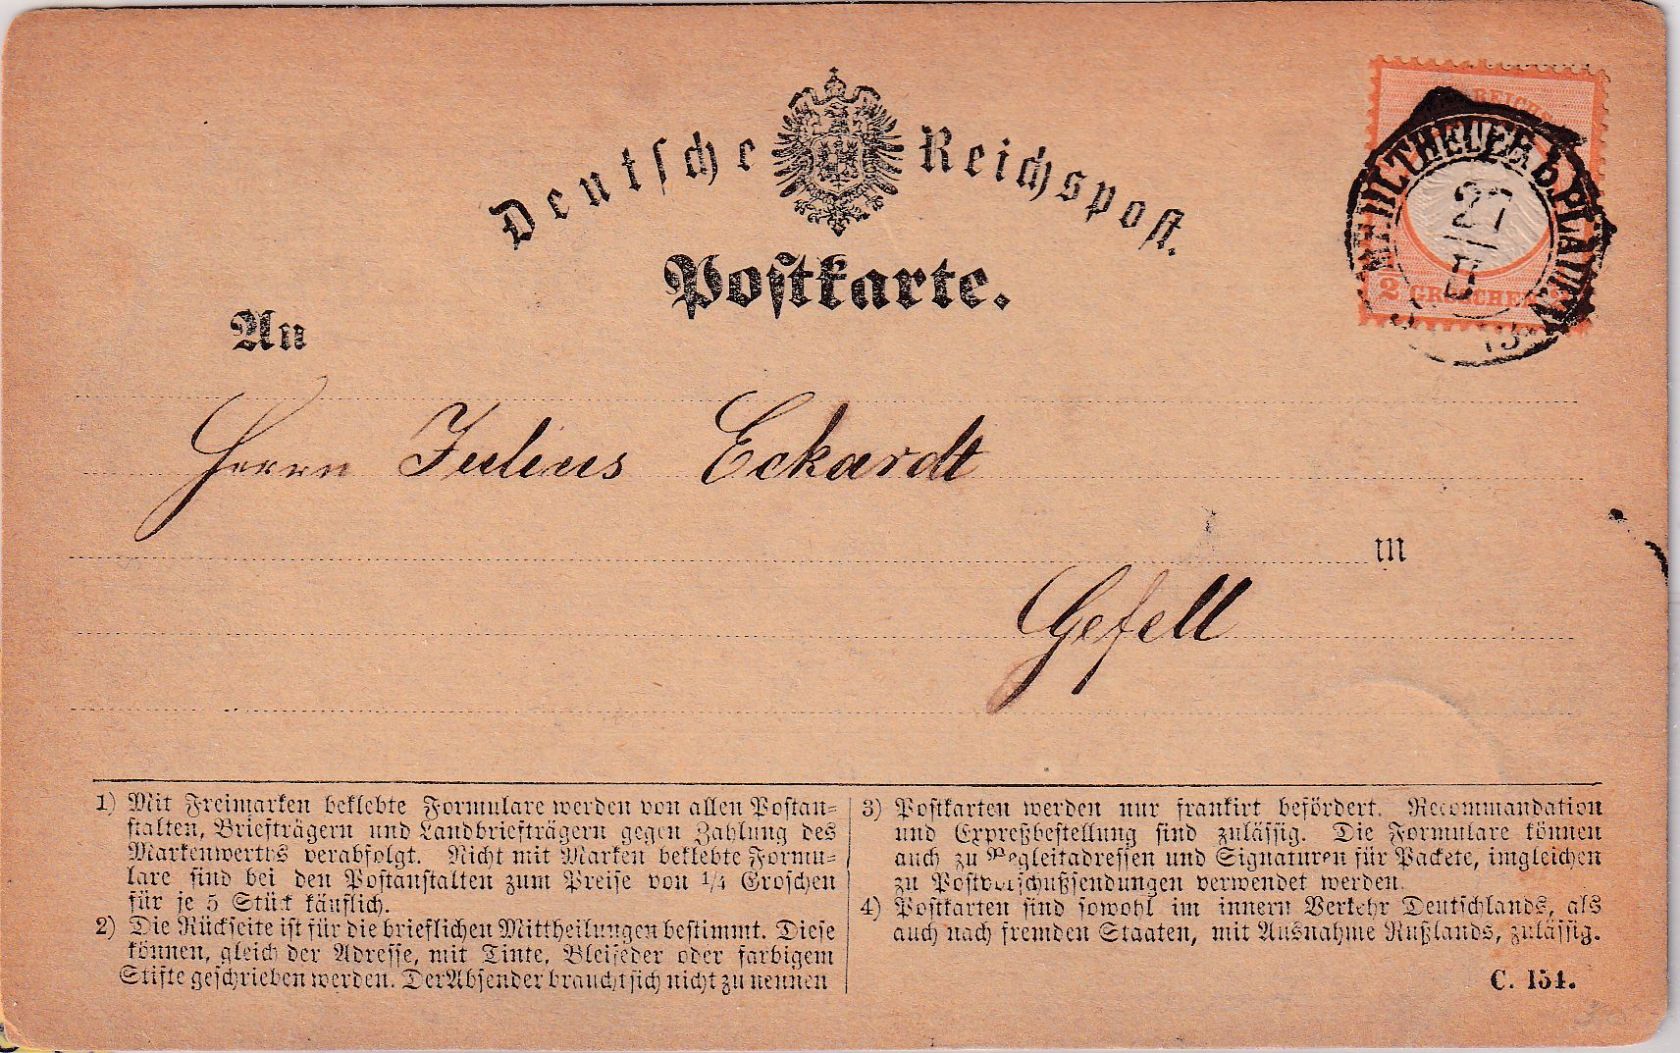 Deutsche Reichspost.
Postkarte.
REICHS
½ GROSCHEN
MEHLTHEUER B. PLAUEN
27
II
An
Herrn Julius Eckardt
in
Gefell
1) Mit Freimarken beklebte Formulare werden von allen Postan-
stalten, Briefträgern und Landbriefträgern gegen Zahlung des
Markenwerths verabfolgt. Nicht mit Marken beklebte Formu-
lare sind bei den Postanstalten zum Preise von 1/4 Groschen
für je 5 Stück käuflich.
2) Die Rückseite ist für die brieflichen Mittheilungen bestimmt. Diese
können, gleich der Adresse, mit Tinte, Bleifeder oder farbigem
Stifte geschrieben werden. Der Absender braucht sich nicht zu nennen
3) Postkarten werden nur frankirt befördert. Recommandation
und Expreßbestellung sind zulässig. Die Formulare können
auch zu Begleitadressen und Signaturen für Packete, imgleichen
zu Postvorschußsendungen verwendet werden.
4) Postkarten sind sowohl im innern Verkehr Deutschlands, als
auch nach fremden Staaten, mit Ausnahme Rußlands, zulässig.
C. 154.